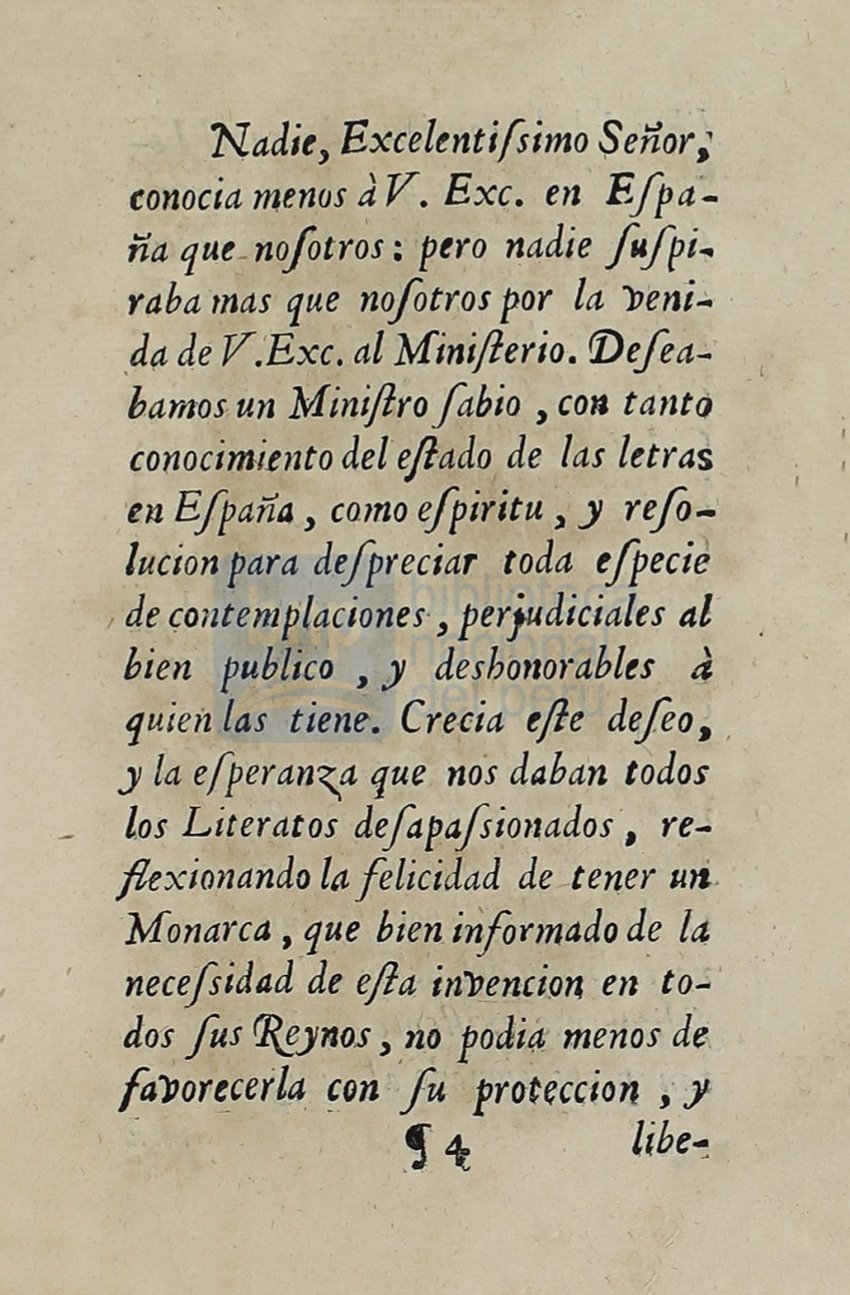 Nadie, Excelentiſsimo Señor,
conocia menos à V. Exc. en Eſpa-
ña que noſotros: pero nadie ſuſpi-
raba mas que noſotros por la veni-
da de V. Exc. al Miniſterio. Deſea-
bamos un Miniſtro ſabio, con tanto
conocimiento del eſtado de las letras
en Eſpaña, como eſpiritu, y reſo-
lucion para deſpreciar toda eſpecie
de contemplaciones, perjudiciales al
bien publico, y deshonorables à
quien las tiene. Crecia eſte deſeo,
y la eſperanza que nos daban todos
los Literatos deſapaſsionados, re-
flexionando la felicidad de tener un
Monarca, que bien informado de la
neceſsidad de eſta invencion en to-
dos ſus Reynos, no podia menos de
favorecerla con ſu proteccion, y
¶ 4 libe-